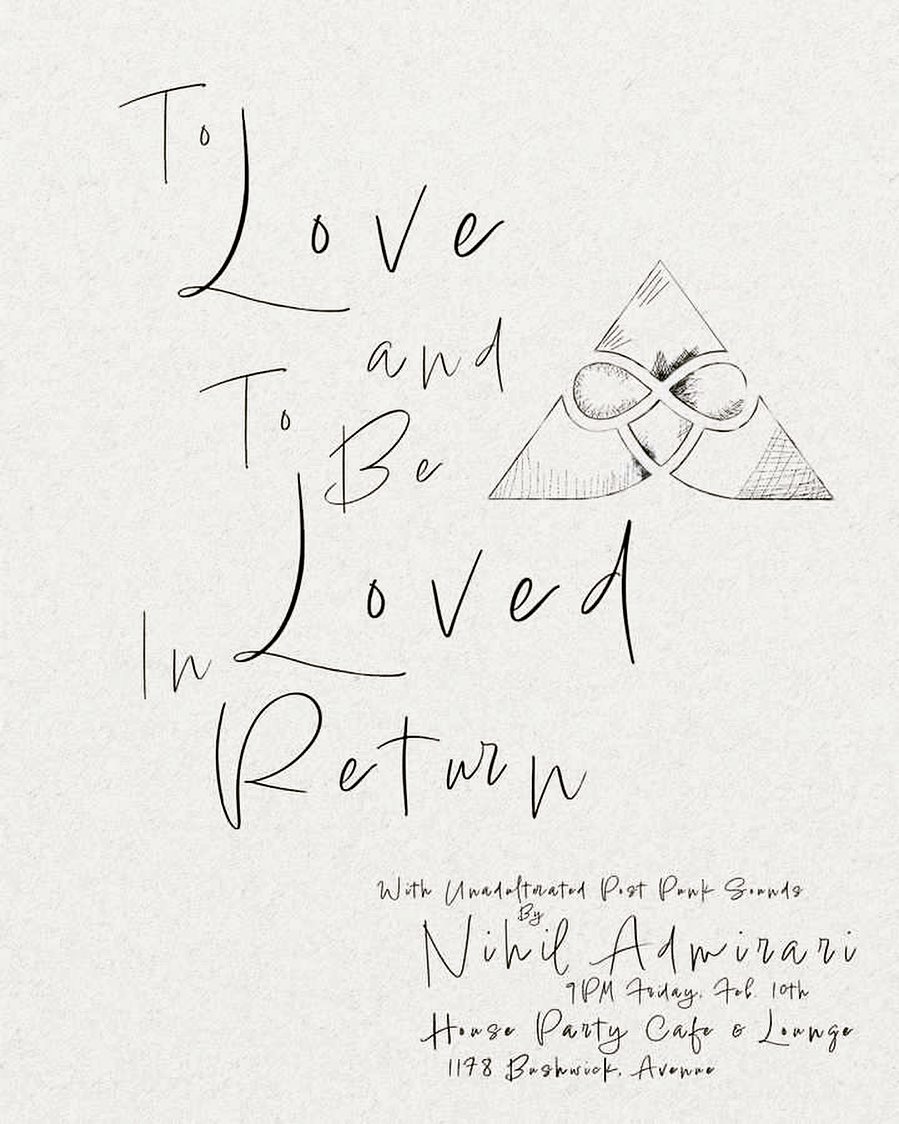 To
Love
and
To
Be
Loved
In
Return
With Unadulterated Post Punk Sounds
By
Nihil Admirari
9PM Friday, Feb. 10th
House Party Cafe & Lounge
1178 Bushwick, Avenue